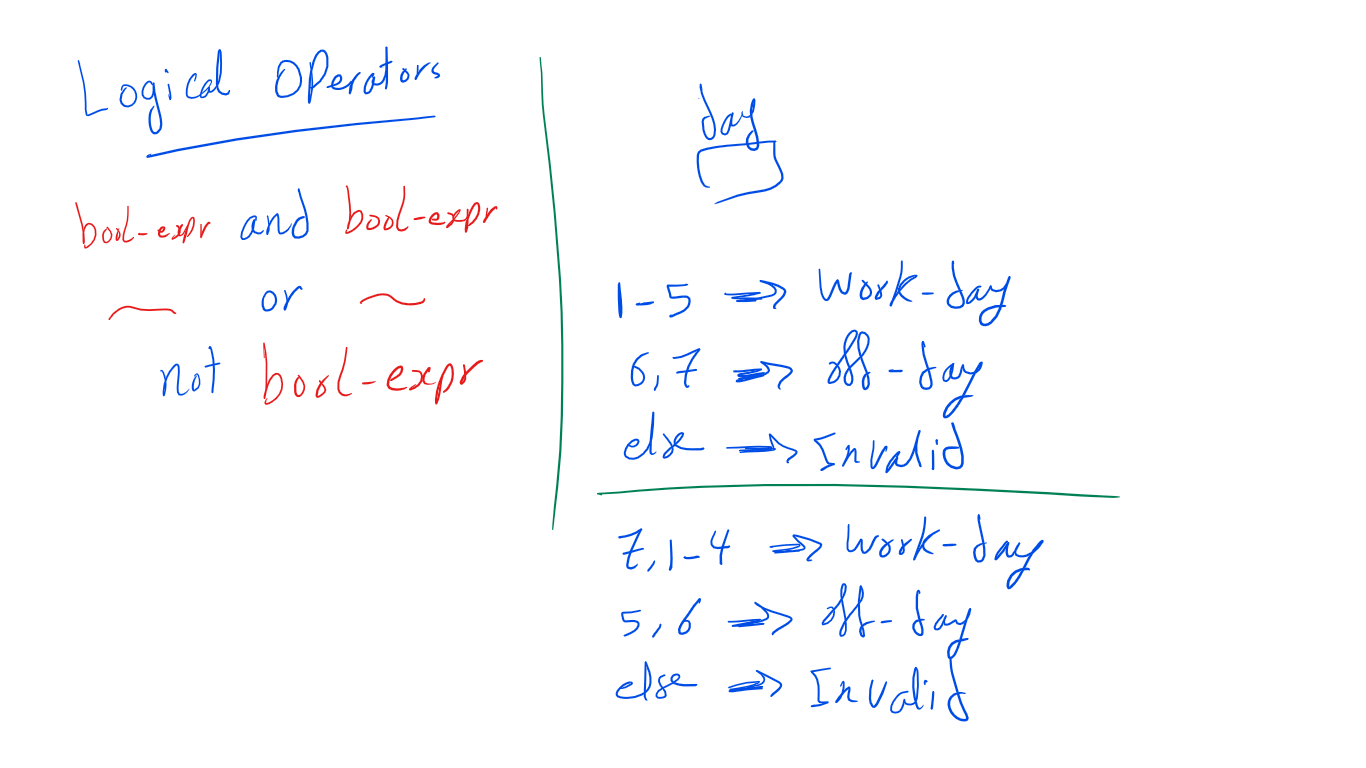 Logical Operators
bool-expr and bool-expr
or
not bool-expr
day
1-5 => Work-day
6,7 => off-day
else => Invalid
7,1-4 => Work-day
5,6 => off-day
else => Invalid